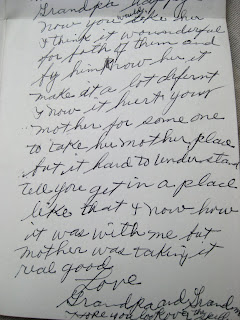 Grandpa
now you like her
I think it wounderful
for both of them and
by him know her it
make it a lot differnt
I now it hurts your
mother for some one
to take her mother place
but it hard to understand
tell you get in a place
like that & now how
it was with me but
mother was taking it
real good
Love
Grandpa and Grandm
you look over my